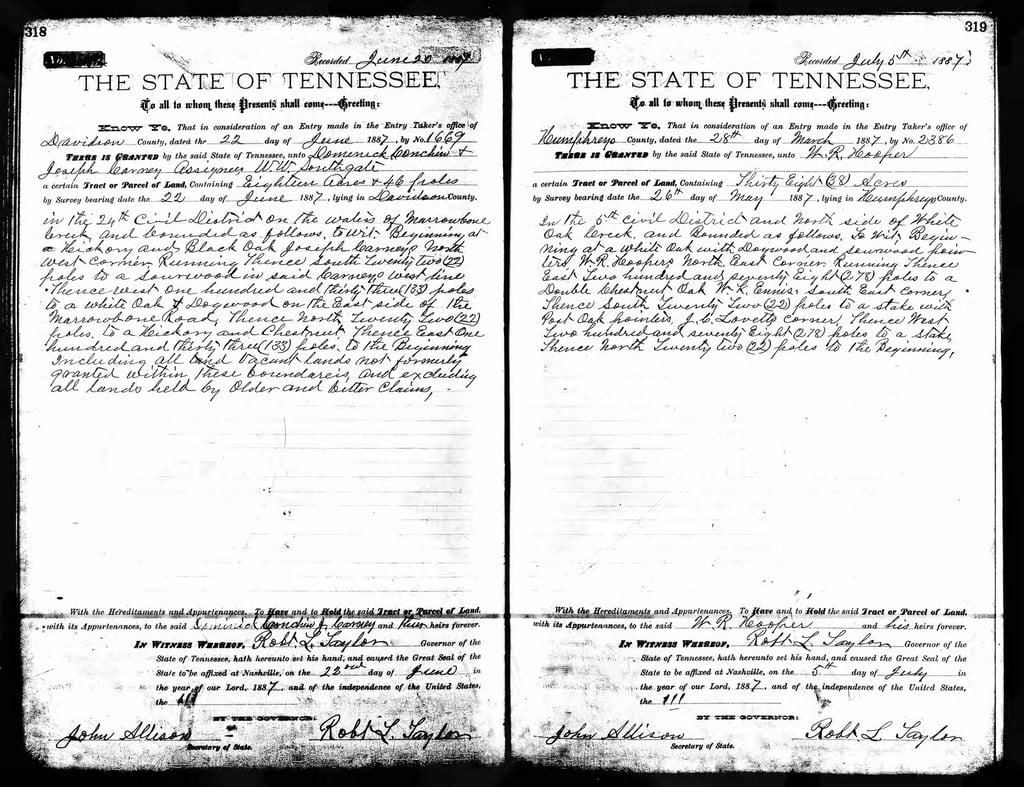 318
Recorded June 20 1887
THE STATE OF TENNESSEE,
To all to whom these Presents shall come---Greeting:
KNOW YE, That in consideration of an Entry made in the Entry Taker's office of
Davidson County, dated the 22 day of June 1887, by No. 1669
THERE IS GRANTED by the said State of Tennessee, unto Domenick Conchin &
Joseph Carney Assignees W.W. Southgate
a certain Tract or Parcel of Land, Containing Eighteen Acres & 46 poles
by Survey bearing date the 22 day of June 1887, lying in Davidson County.
in the 24th Civil District on the waters of Marrowbone
Creek and bounded as follows, to wit Beginning at
a Hickory and Black Oak Joseph Carneys North
west Corner Running Thence South Twenty two (22)
poles to a Sourwood in said Carneys West line
Thence west one hundred and thirty three (133) poles
to a white Oak & Dogwood on the East side of the
Marrowbone Road, Thence North Twenty Two (22)
poles, to a Hickory and Chestnut Thence East One
hundred and thirty three (133) poles, to the Beginning
Including all and vacunt lands not formerly
granted within these boundareis, and excluding
all lands held by Older and better Claims,
With the Hereditaments and Appurtenances. To Have and to Hold the said Tract or Parcel of Land,
with its Appurtenances, to the said Dominick Conchin J. Carney and their heirs forever.
IN WITNESS WHEREOF, Robt L. Taylor Governor of the
State of Tennessee, hath hereunto set his hand, and caused the Great Seal of the
State to be affixed at Nashville, on the 22nd day of June in
the year of our Lord, 1887, and of the independence of the United States,
the 111
BY THE GOVERNOR:
John Allison Robt L. Taylor
Secretary of State.
319
Recorded July 5th 1887
THE STATE OF TENNESSEE,
To all to whom these Presents shall come---Greeting:
KNOW YE, That in consideration of an Entry made in the Entry Taker's office of
Humphreys County, dated the 28th day of March 1887, by No. 2386
THERE IS GRANTED by the said State of Tennessee, unto W. R. Hooper
a certain Tract or Parcel of Land, Containing Thirty Eight (38) Acres
by Survey bearing date the 26th day of May 1887, lying in Humphreys County.
In the 5th civil District and North side of White
Oak Creek and Bounded as follows. To Wit, Begin-
ning at a White Oak with Dogwood and sourwood poin-
ters, W.R. Hoopers North East Corner Running Thence
East Two hundred and seventy Eight (278) poles to a
Double Chestnut Oak W. L. Ennis South East Corner,
Thence South Twenty Two (22) poles to a stake with
Post Oak pointers, J. C. Lovetts Corner, Thence West
Two hundred and seventy Eight (278) poles to a Stake
Thence North Twenty two (22) poles to the Beginning,
With the Hereditaments and Appurtenances. To Have and to Hold the said Tract or Parcel of Land,
with its Appurtenances, to the said W. R. Hooper and his heirs forever.
IN WITNESS WHEREOF, Robt L. Taylor Governor of the
State of Tennessee, hath hereunto set his hand, and caused the Great Seal of the
State to be affixed at Nashville, on the 5th day of July in
the year of our Lord, 1887, and of the independence of the United States,
the 111
BY THE GOVERNOR:
John Allison Robt L Taylor
Secretary of State.